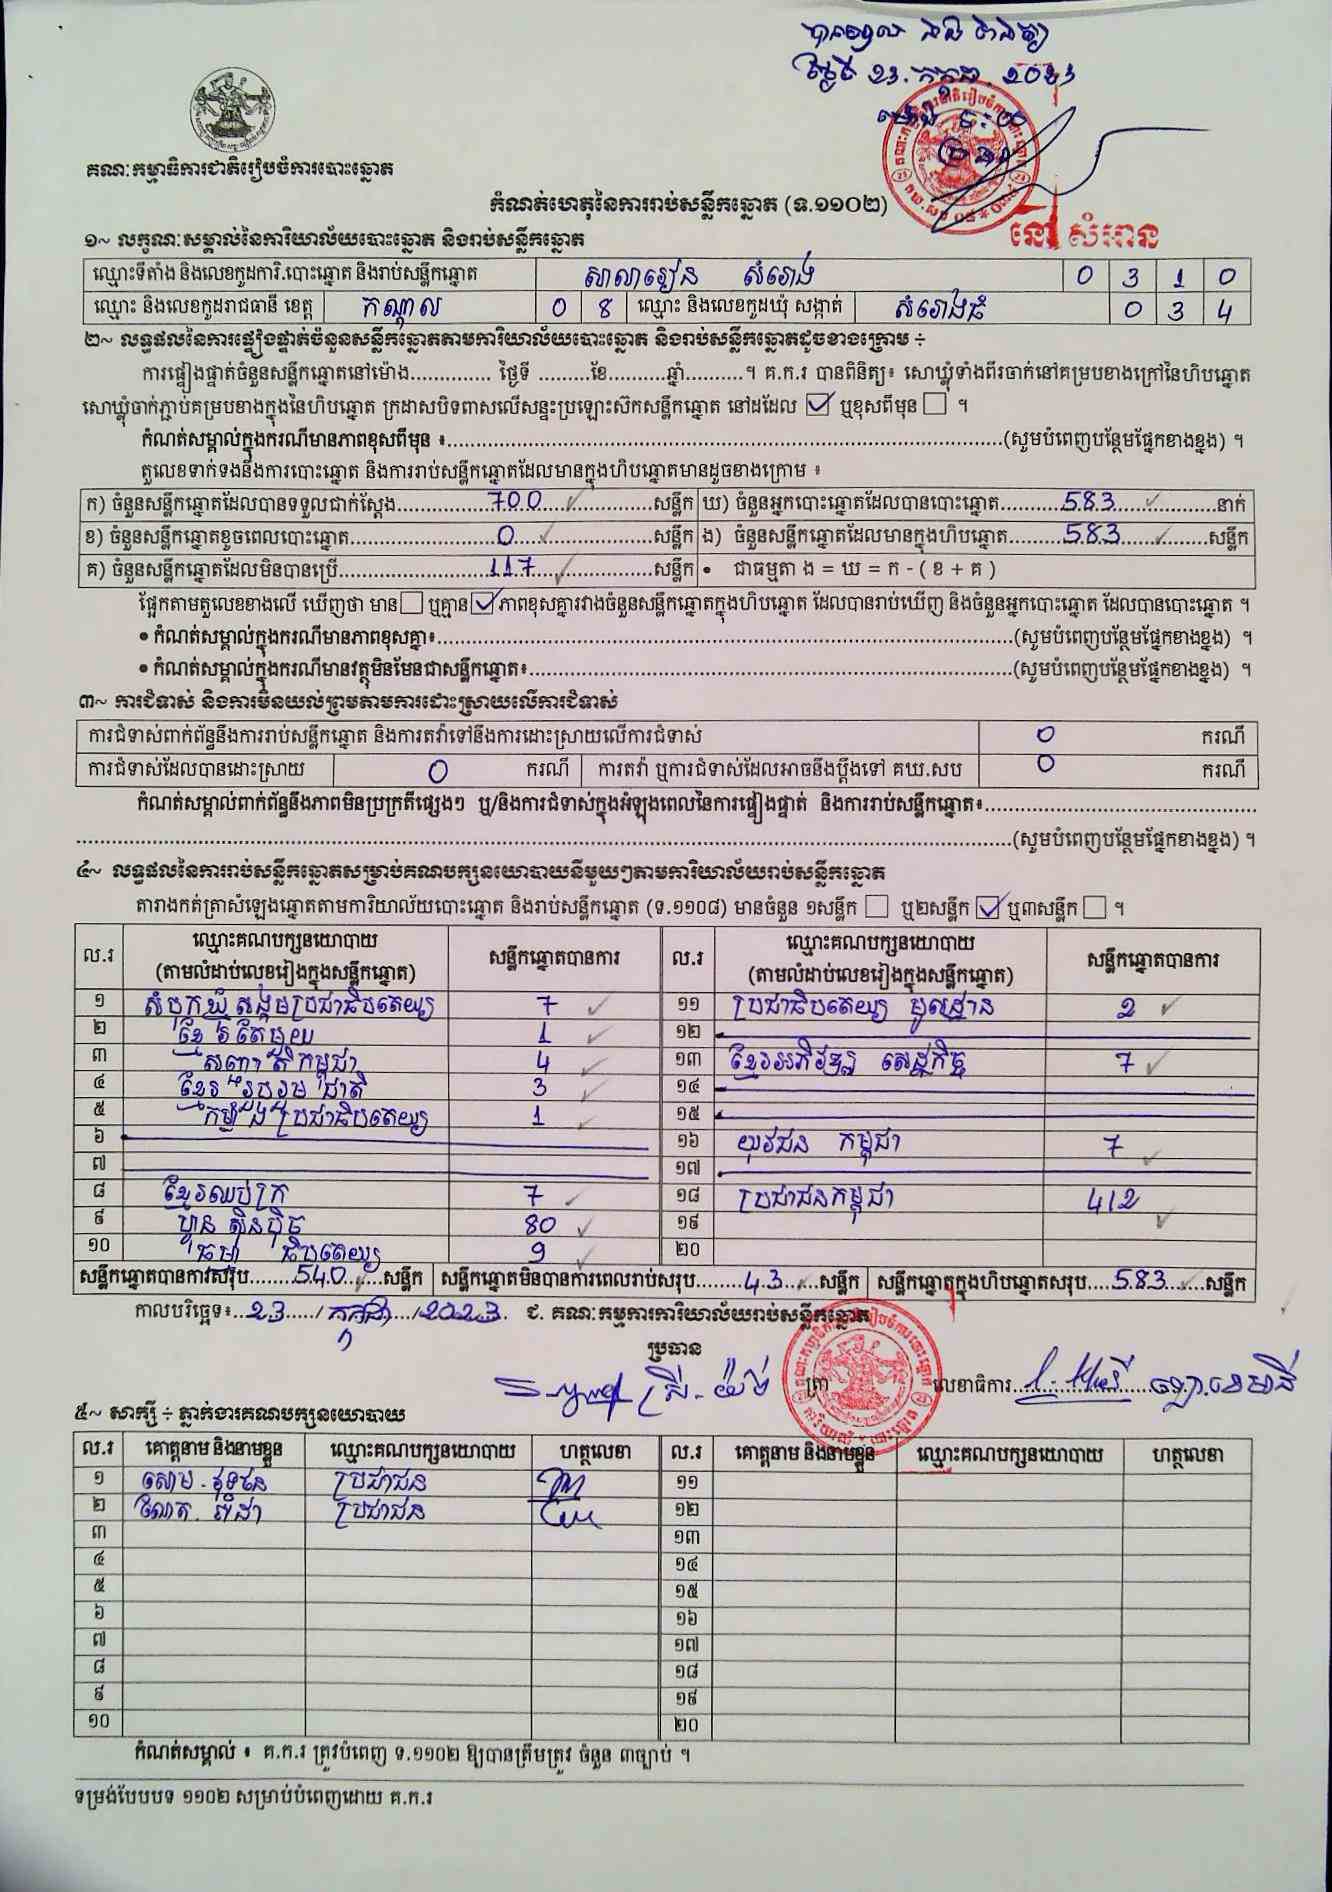 ថ្ងៃទី 23. កក្កដា. 2023
គណៈកម្មាធិការជាតិរៀបចំការបោះឆ្នោត
កំណត់ហេតុនៃការរាប់សន្លឹកឆ្នោត (ទ.១១០២)
នៅ សំអាន
១~ លក្ខណៈសម្គាល់នៃការិយាល័យបោះឆ្នោត និងរាប់សន្លឹកឆ្នោត
ឈ្មោះទីតាំង និងលេខកូដការិ.បោះឆ្នោត និងរាប់សន្លឹកឆ្នោត សាលារៀន សំរោង 0 3 1 0
ឈ្មោះ និងលេខកូដរាជធានី ខេត្ត កណ្តាល 0 8 ឈ្មោះ និងលេខកូដឃុំ សង្កាត់ សំរោងធំ 0 3 4
២~ លទ្ធផលនៃការផ្ទៀងផ្ទាត់ចំនួនសន្លឹកឆ្នោតតាមការិយាល័យបោះឆ្នោត និងរាប់សន្លឹកឆ្នោតដូចខាងក្រោម ÷
ការផ្ទៀងផ្ទាត់ចំនួនសន្លឹកឆ្នោតនៅម៉ោង.............. ថ្ងៃទី .........ខែ..........ឆ្នាំ..........។ គ.ក.រ បានពិនិត្យ៖ សោឃ្លុំទាំងពីរចាក់នៅគម្របខាងក្រៅនៃហិបឆ្នោត
សោឃ្លុំចាក់ភ្ជាប់គម្របខាងក្នុងនៃហិបឆ្នោត ក្រដាសបិទពាសលើសន្ទះប្រឡោះស៊កសន្លឹកឆ្នោត នៅដដែល ☑ ឬខុសពីមុន ☐ ។
កំណត់សម្គាល់ក្នុងករណីមានភាពខុសពីមុន ៖..........(សូមបំពេញបន្ថែមផ្នែកខាងខ្នង) ។
តួលេខទាក់ទងនឹងការបោះឆ្នោត និងការរាប់សន្លឹកឆ្នោតដែលមានក្នុងហិបឆ្នោតមានដូចខាងក្រោម ៖
ក) ចំនួនសន្លឹកឆ្នោតដែលបានទទួលជាក់ស្តែង..........700..........សន្លឹក ឃ) ចំនួនអ្នកបោះឆ្នោតដែលបានបោះឆ្នោត..........583..........នាក់
ខ) ចំនួនសន្លឹកឆ្នោតខូចពេលបោះឆ្នោត..........0..........សន្លឹក ង) ចំនួនសន្លឹកឆ្នោតដែលមានក្នុងហិបឆ្នោត..........583..........សន្លឹក
គ) ចំនួនសន្លឹកឆ្នោតដែលមិនបានប្រើ..........117..........សន្លឹក • ជាធម្មតា ង = ឃ = ក - ( ខ + គ )
ផ្អែកតាមតួលេខខាងលើ ឃើញថា មាន ☐ ឬគ្មាន ☑ ភាពខុសគ្នារវាងចំនួនសន្លឹកឆ្នោតក្នុងហិបឆ្នោត ដែលបានរាប់ឃើញ និងចំនួនអ្នកបោះឆ្នោត ដែលបានបោះឆ្នោត ។
• កំណត់សម្គាល់ក្នុងករណីមានភាពខុសគ្នា៖..........(សូមបំពេញបន្ថែមផ្នែកខាងខ្នង) ។
• កំណត់សម្គាល់ក្នុងករណីមានវត្ថុមិនមែនជាសន្លឹកឆ្នោត៖..........(សូមបំពេញបន្ថែមផ្នែកខាងខ្នង) ។
៣~ ការជំទាស់ និងការមិនយល់ព្រមតាមការដោះស្រាយលើការជំទាស់
ការជំទាស់ពាក់ព័ន្ធនឹងការរាប់សន្លឹកឆ្នោត និងការតវ៉ាទៅនឹងការដោះស្រាយលើការជំទាស់ 0 ករណី
ការជំទាស់ដែលបានដោះស្រាយ 0 ករណី ការតវ៉ា ឬការជំទាស់ដែលអាចនឹងប្តឹងទៅ គឃ.សប 0 ករណី
កំណត់សម្គាល់ពាក់ព័ន្ធនឹងភាពមិនប្រក្រតីផ្សេងៗ ឬ/និងការជំទាស់ក្នុងអំឡុងពេលនៃការផ្ទៀងផ្ទាត់ និងការរាប់សន្លឹកឆ្នោត៖..........
..........(សូមបំពេញបន្ថែមផ្នែកខាងខ្នង) ។
៤~ លទ្ធផលនៃការរាប់សន្លឹកឆ្នោតសម្រាប់គណបក្សនយោបាយនីមួយៗតាមការិយាល័យរាប់សន្លឹកឆ្នោត
តារាងកត់ត្រាសំឡេងឆ្នោតតាមការិយាល័យបោះឆ្នោត និងរាប់សន្លឹកឆ្នោត (ទ.១១០៨) មានចំនួន ១សន្លឹក ☐ ឬ២សន្លឹក ☑ ឬ៣សន្លឹក ☐ ។
ល.រ ឈ្មោះគណបក្សនយោបាយ សន្លឹកឆ្នោតបានការ ល.រ ឈ្មោះគណបក្សនយោបាយ សន្លឹកឆ្នោតបានការ
(តាមលំដាប់លេខរៀងក្នុងសន្លឹកឆ្នោត) (តាមលំដាប់លេខរៀងក្នុងសន្លឹកឆ្នោត)
១ សំបុកឃ្មុំសង្គមប្រជាធិបតេយ្យ 7 ១១ ប្រជាធិបតេយ្យ មូលដ្ឋាន 2
២ ខ្មែរតែមួយ 1 ១២
៣ សញ្ជាតិកម្ពុជា 4 ១៣ ខ្មែរអភិវឌ្ឍន៍ សេដ្ឋកិច្ច 7
៤ ខ្មែររួបរួមជាតិ 3 ១៤
៥ កម្លាំងប្រជាធិបតេយ្យ 1 ១៥
៦ ១៦ យុវជន កម្ពុជា 7
៧ ១៧
៨ ខ្មែរឈប់ក្រ 7 ១៨ ប្រជាជនកម្ពុជា 412
៩ ហ្វ៊ុនស៊ិនប៉ិច 80 ១៩
១០ ធម្មាធិបតេយ្យ 9 ២០
សន្លឹកឆ្នោតបានការសរុប.......540.......សន្លឹក សន្លឹកឆ្នោតមិនបានការពេលរាប់សរុប.......43.......សន្លឹក សន្លឹកឆ្នោតក្នុងហិបឆ្នោតសរុប....583....សន្លឹក
កាលបរិច្ឆេទ៖..23...../កក្កដា..../2023. ជ. គណៈកម្មការការិយាល័យរាប់សន្លឹកឆ្នោត
ប្រធាន
ត្រា លេខាធិការ
៥~ សាក្សី ÷ ភ្នាក់ងារគណបក្សនយោបាយ
ល.រ គោត្តនាម និងនាមខ្លួន ឈ្មោះគណបក្សនយោបាយ ហត្ថលេខា ល.រ គោត្តនាម និងនាមខ្លួន ឈ្មោះគណបក្សនយោបាយ ហត្ថលេខា
១ ប្រជាជន ១១
២ ប្រជាជន ១២
៣ ១៣
៤ ១៤
៥ ១៥
៦ ១៦
៧ ១៧
៨ ១៨
៩ ១៩
១០ ២០
កំណត់សម្គាល់ ៖ គ.ក.រ ត្រូវបំពេញ ទ.១១០២ ឱ្យបានត្រឹមត្រូវ ចំនួន ៣ច្បាប់ ។
ទម្រង់បែបបទ ១១០២ សម្រាប់បំពេញដោយ គ.ក.រ